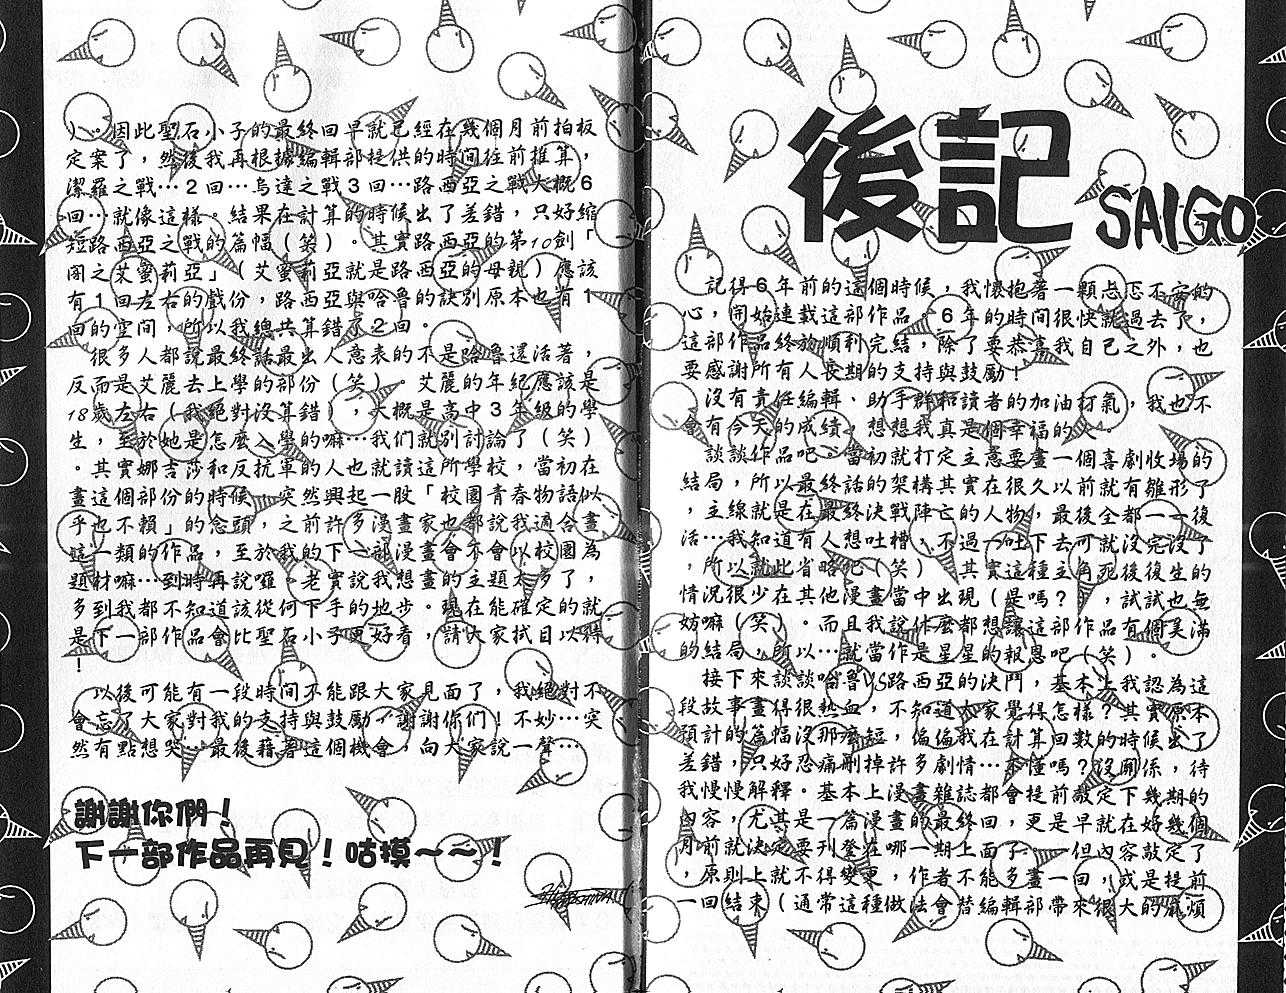 後記 SAIGO
記得6年前的這個時候,我懷抱著一顆忐忑不安的
心,開始連載這部作品。6年的時間很快就過去了,
這部作品終於順利完結,除了要恭喜我自己之外,也
要感謝所有人長期的支持與鼓勵!
沒有責任編輯、助手群和讀者的加油打氣,我也不
會有今天的成績,想想我真是個幸福的人。
談談作品吧。當初就打定主意要畫一個喜劇收場的
結局,所以最終話的架構其實在很久以前就有雛形了
,主線就是在最終決戰陣亡的人物,最後全都一一復
活…我知道有人想吐槽,不過一吐下去可就沒完沒了
,所以就此省略吧(笑)。其實這種主角死後復生的
情況很少在其他漫畫當中出現(是嗎?),試試也無
妨嘛(笑)。而且我說什麼都想讓這部作品有個美滿
的結局,所以…就當作是星星的報恩吧(笑)。
接下來談談哈魯VS路西亞的決鬥,基本上我認為這
段故事畫得很熱血,不知道大家覺得怎樣?其實原本
預計的篇幅沒那麼短,偏偏我在計算回數的時候出了
差錯,只好忍痛刪掉許多劇情…不懂嗎?沒關係,待
我慢慢解釋。基本上漫畫雜誌都會提前敲定下幾期的
內容,尤其是一篇漫畫的最終回,更是早就在好幾個
月前就決定要刊登在哪一期上面了。一但內容敲定了
,原則上就不得變更,作者不能多畫一回,或是提前
一回結束(通常這種做法會替編輯部帶來很大的麻煩
)。因此聖石小子的最終回早就已經在幾個月前拍板
定案了,然後我再根據編輯部提供的時間往前推算,
潔羅之戰…2回…烏達之戰3回…路西亞之戰大概6
回…就像這樣。結果在計算的時候出了差錯,只好縮
短路西亞之戰的篇幅(笑)。其實路西亞的第10劍「
闇之艾蜜莉亞」(艾蜜莉亞就是路西亞的母親)應該
有1回左右的戲份,路西亞與哈魯的訣別原本也有1
回的空間,所以我總共算錯了2回。
很多人都說最終話最出人意表的不是哈魯還活著,
反而是艾麗去上學的部份(笑)。艾麗的年紀應該是
18歲左右(我絕對沒算錯),大概是高中3年級的學
生,至於她是怎麼入學的嘛…我們就別討論了(笑)
。其實娜吉莎和反抗軍的人也就讀這所學校,當初在
畫這個部份的時候,突然興起一股「校園青春物語似
乎也不賴」的念頭,之前許多漫畫家也都說我適合畫
這一類的作品,至於我的下一部漫畫會不會以校園為
題材嘛…到時再說囉。老實說我想畫的主題太多了,
多到我都不知道該從何下手的地步。現在能確定的就
是下一部作品會比聖石小子更好看,請大家拭目以待
!
以後可能有一段時間不能跟大家見面了,我絕對不
會忘了大家對我的支持與鼓勵,謝謝你們!不妙…突
然有點想哭。最後藉著這個機會,向大家說一聲…
謝謝你們!
下一部作品再見!咕摸~~!